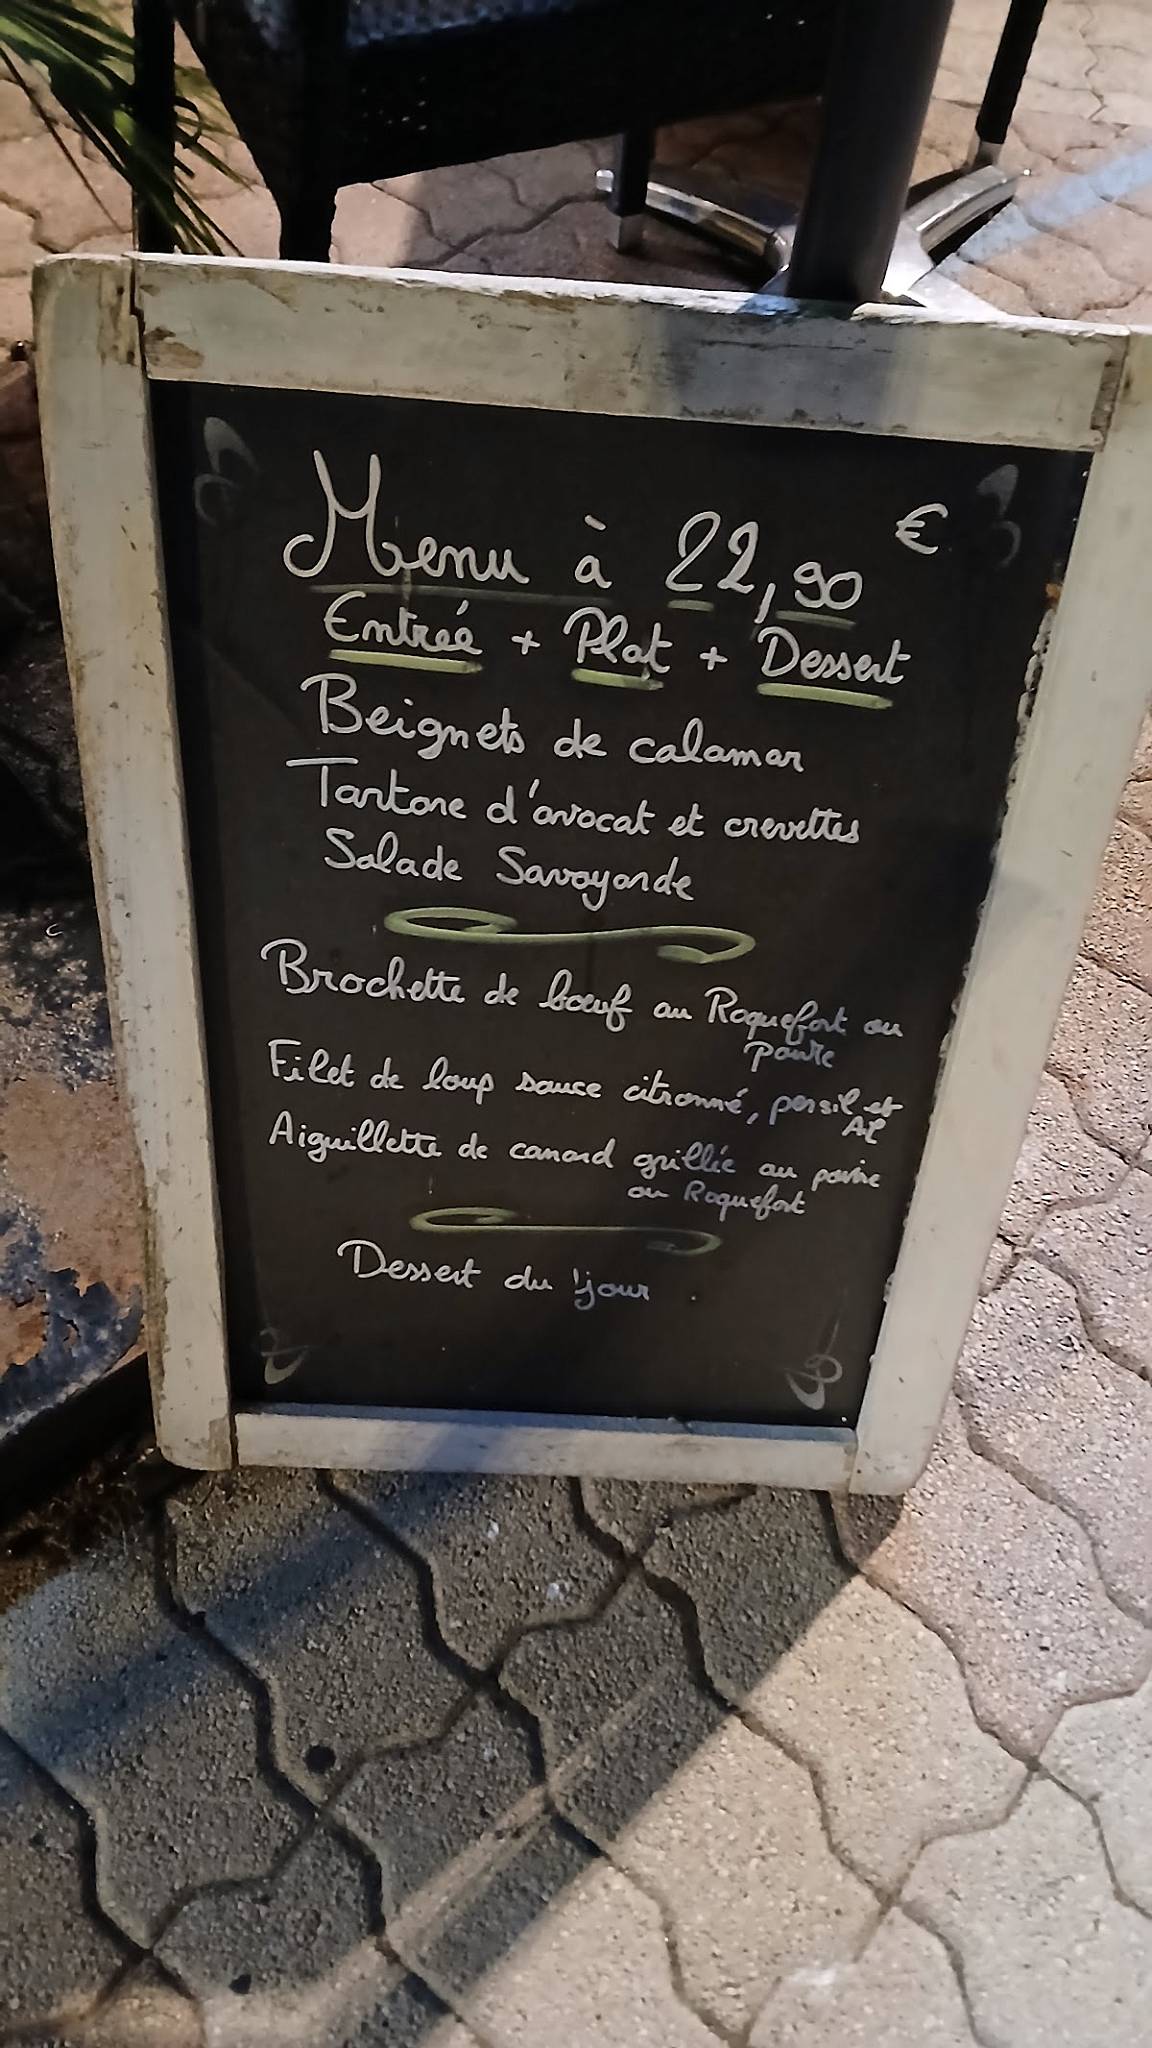 Menu à 22,90 €
Entrée + Plat + Dessert
Beignets de calamar
Tartare d'avocat et crevettes
Salade Savoyarde
Brochette de bœuf au Roquefort ou
poivre
Filet de loup sauce citronné, persil et
Ail
Aiguillette de canard grillée au poivre
ou Roquefort
Dessert du jour